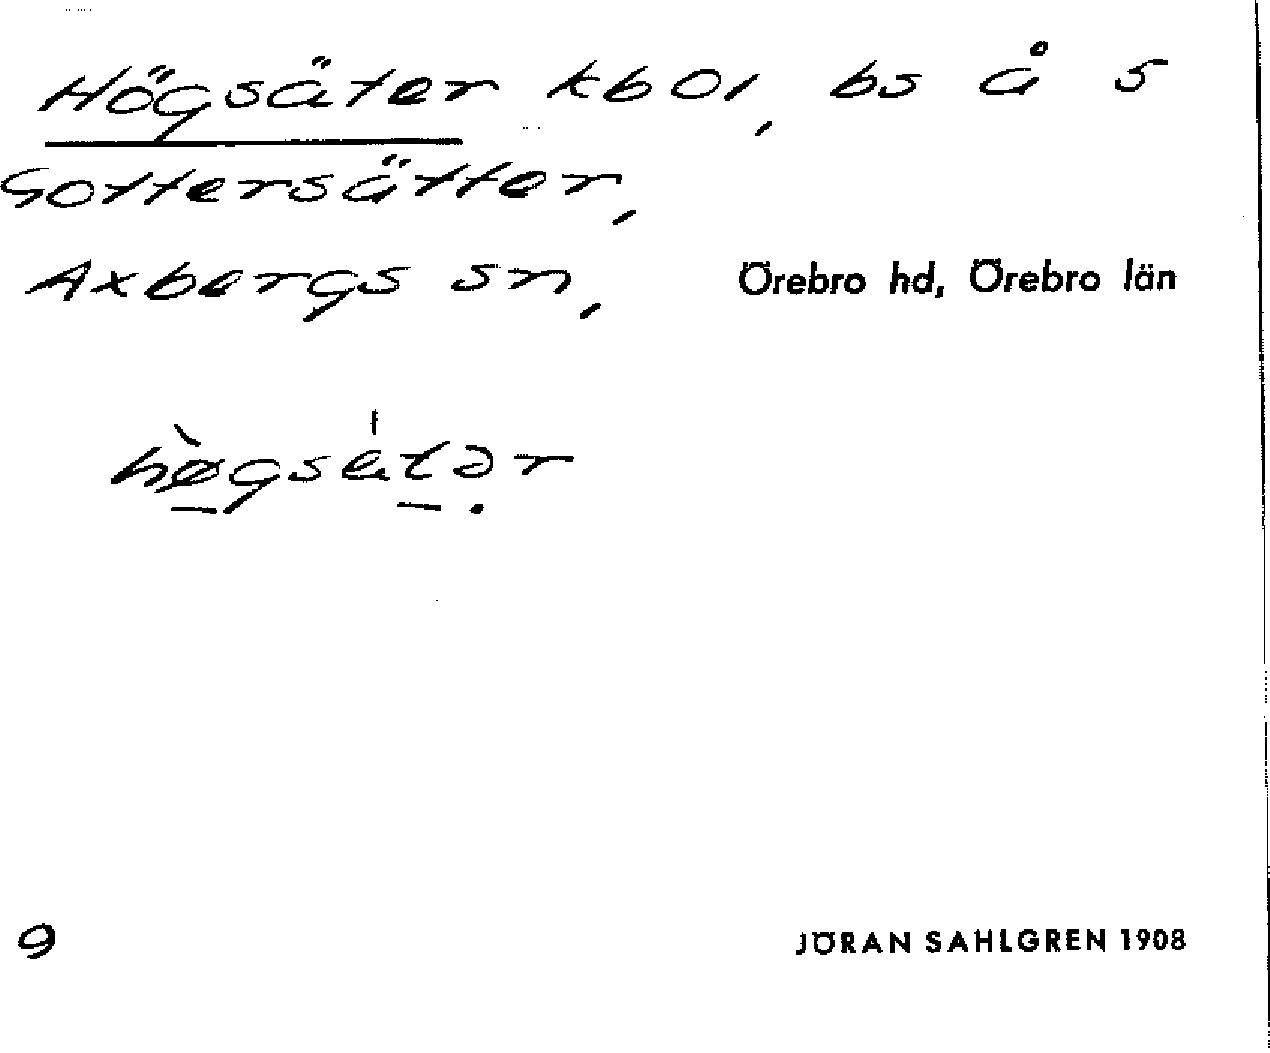 Högsäter kb01, bs å 5
Gottersätter,
Axbergs sn, Örebro hd, Örebro län
hø̀gsätər
9
JÖRAN SAHLGREN 1908